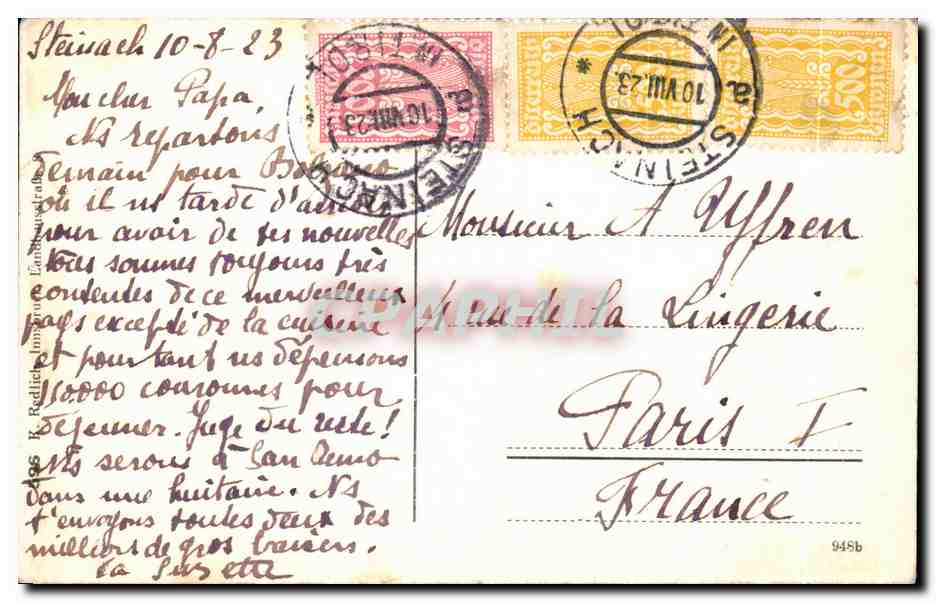 Steinach 10-8-23
Mon cher Papa,
Ns repartons
demain pour Bolzano
où il ns tarde d'
pour avoir de tes nouvelles
sommes toujours très
contentes de ce merveilleux
pays excepté de la cuisine
et pourtant ns dépensons
110000 couronnes pour
déjeuner. Juge du reste!
Ns serons à San Remo
dans une huitaine. Ns
t'envoyons toutes deux des
milliers de gros baisers.
ta Suzette
496 K. Redlich, Innsbruck, Landhausstraße
500
500
STEINACH
IN TIROL
10.VIII.23
a
STEINACH
IN TIROL
10 VIII.23.
a
Monsieur A Yffren
4 rue de la Lingerie
Paris I
France
948b
CPAPHIL